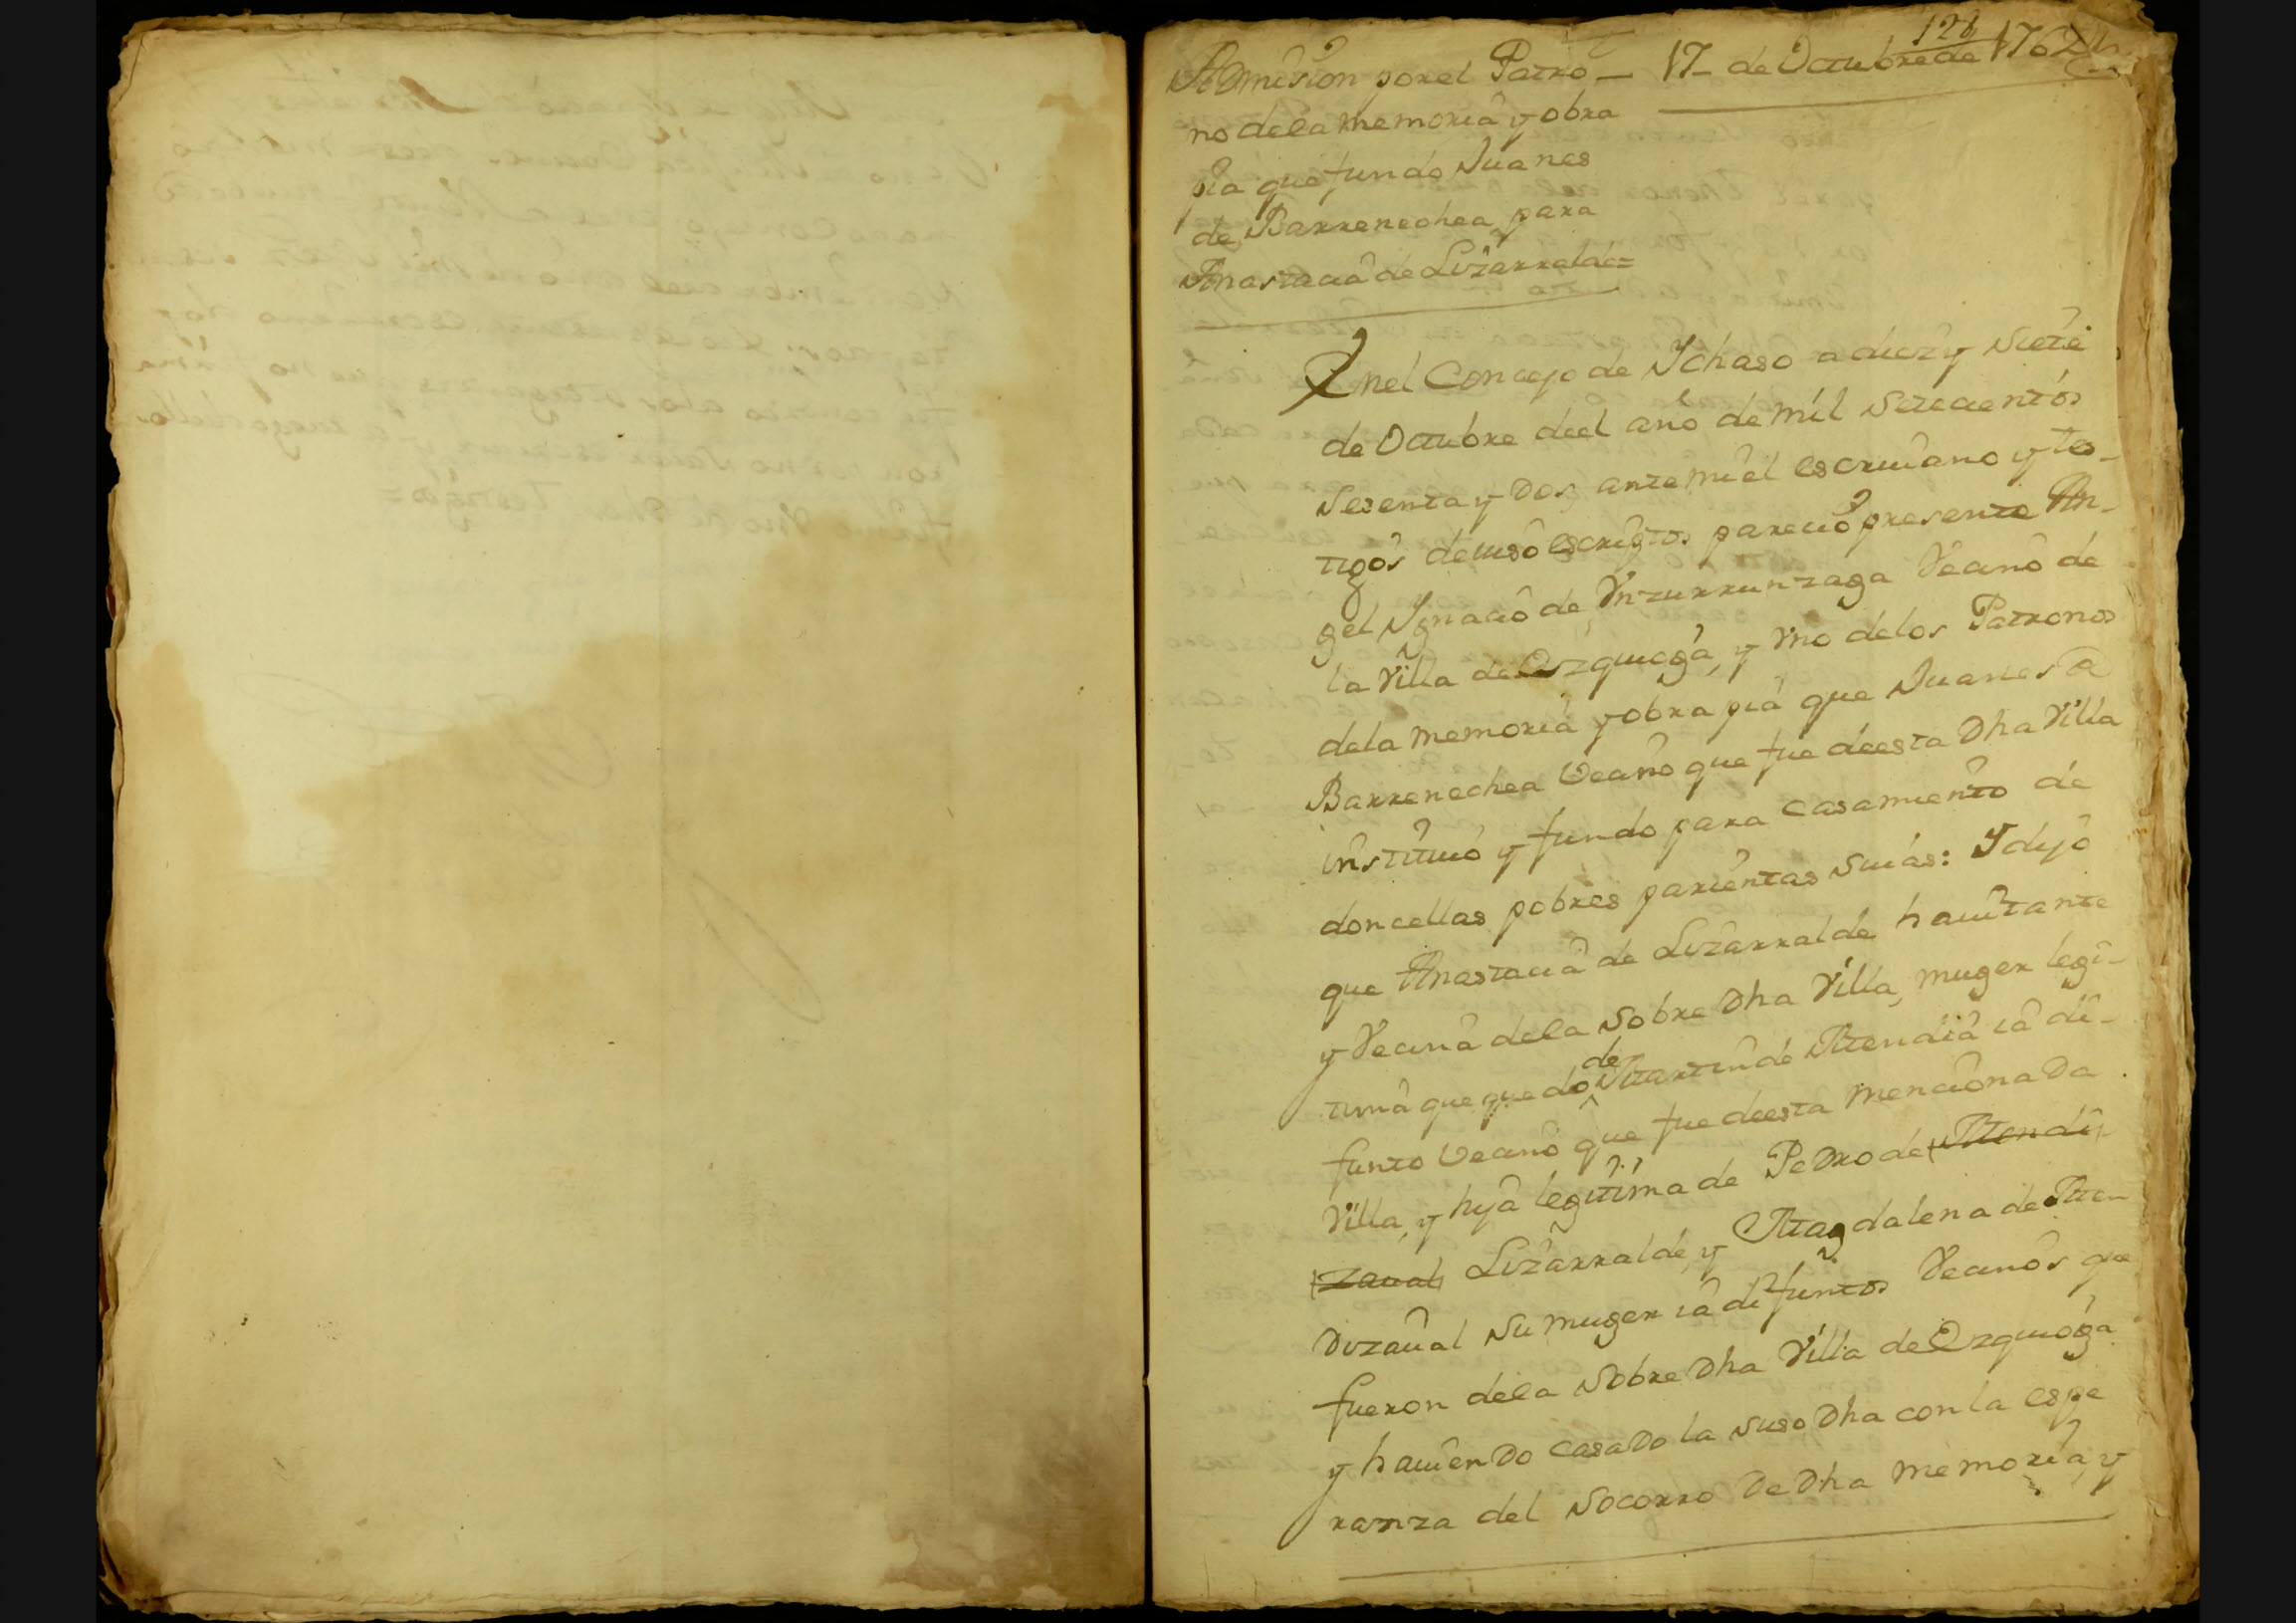 128
Admision por el Patro— 17- de Octubre de 1762
no dela memoria y obra
pia que fundo Juanes
de Barrenechea para
Anastacia de Lizarralde=
En el Concejo de Ychaso a diez y Siete
de Octubre deel año de mil Setecientos
Sesenta y Dos, ante mi el escriuano y tes-
tigos de iuso escriptos parecio presente An-
gel Ygnacio de Ynzurrunzaga Vecino de
la Villa de Ozquiega, y Vno delos Patronos
dela memoria y obra pia que Juanes de
Barrenechea Vecino que fue deesta Dha Villa
instituió y fundo para casamiento de
doncellas pobres parientas Suias: Y dijo
que Anastacia de Lizarralde hauitante
y Vecina dela Sobre Dha Villa, muger legi-
tima que quedo de Martin de Mendia ia di-
funto Vecino que fue deesta mencionaDa
Villa, y hija legitima de PeDro de Mendi-
zaual Lizarralde, y Magdalena de Men
Dizaual Su muger ia difuntos Vecinos que
fueron dela Sobre Dha Villa de Ozquioga
y hauienDo casaDo la suso Dha con la espe
ranza del Socorro De Dha memoria, y